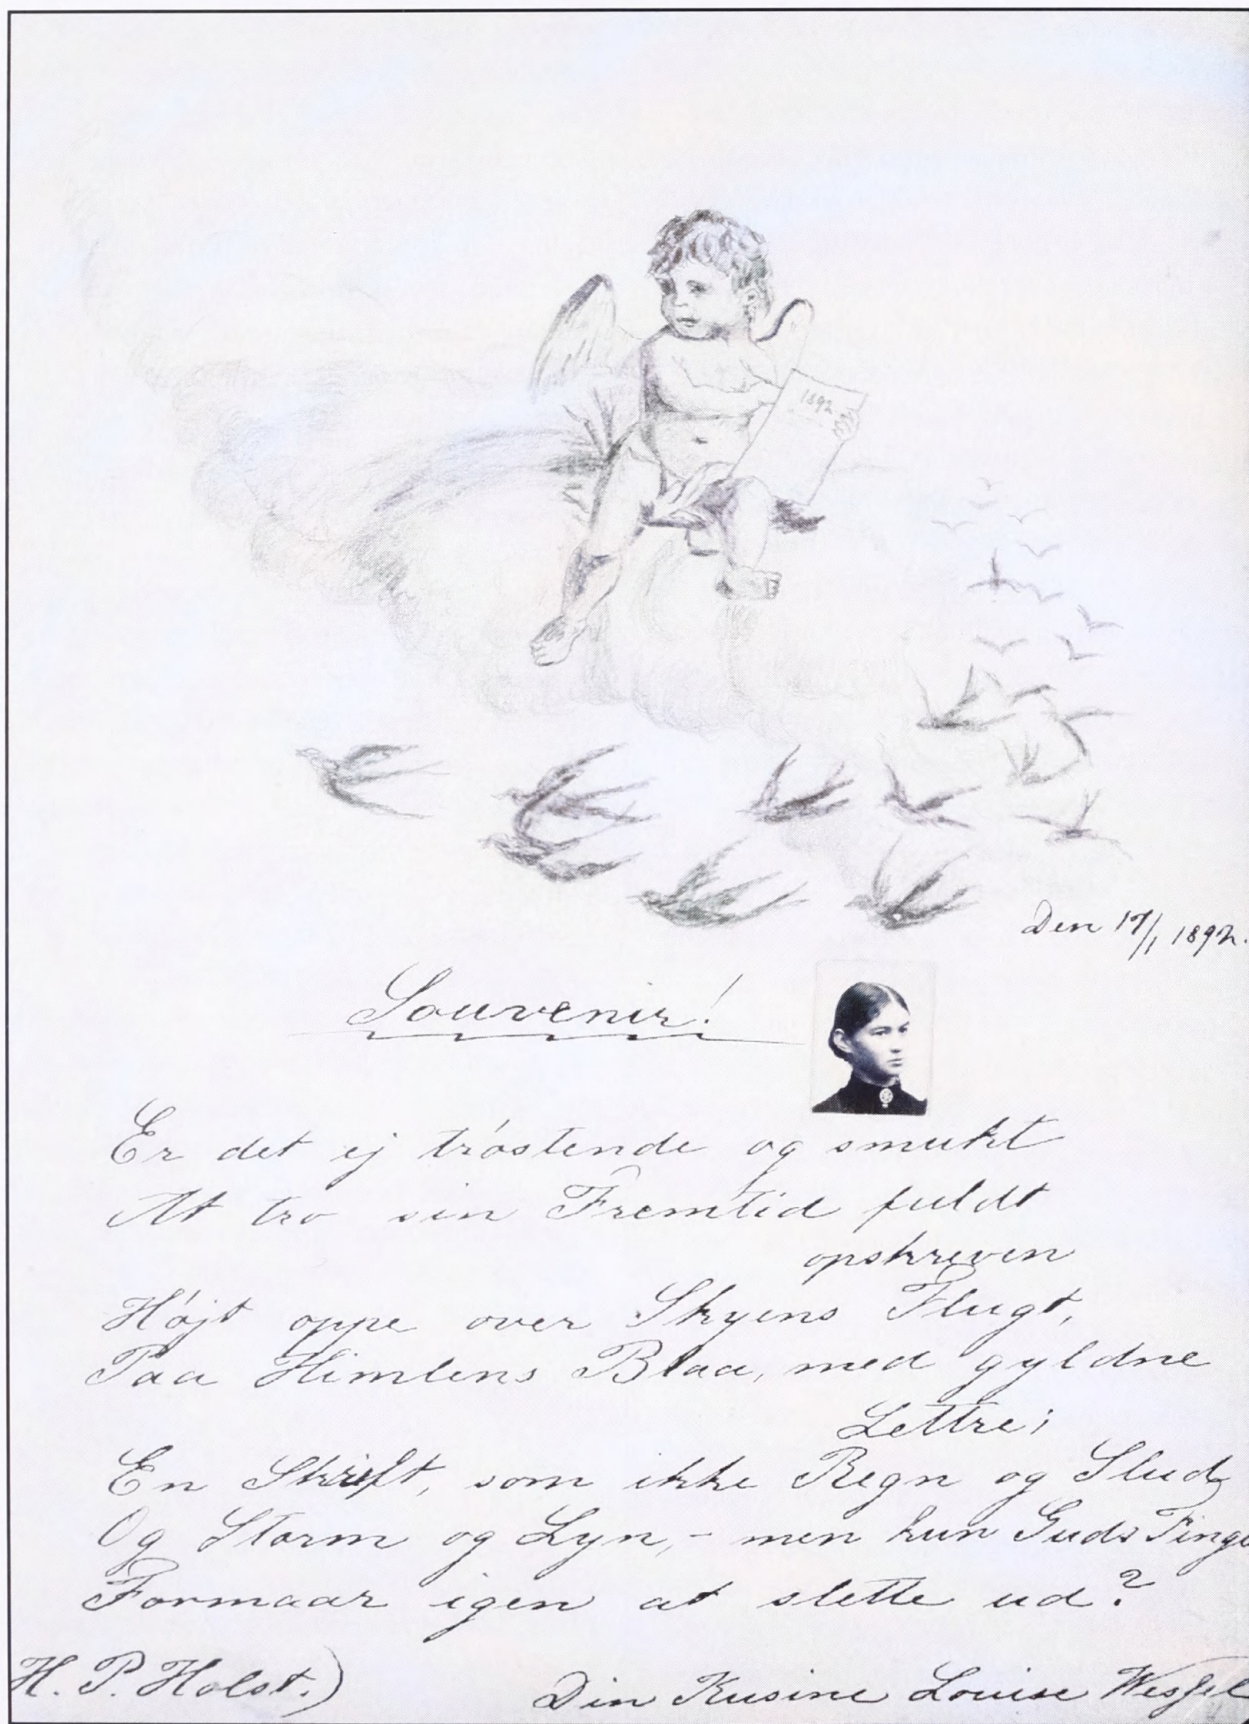 1892
Den 17/1 1892.
Souvenir!
Er det ej trøstende og smukt
At tro sin Fremtid fuldt
opskreven
Højt oppe over Skyens Flugt,
Paa Himlens Blaa, med gyldne
Lettre;
En Skrift, som ikke Regn og Slud,
Og Storm og Lyn, – men kun Guds Finge
Formaar igen at slette ud?
H. P. Holst.)
Din Kusine Louise Wessel